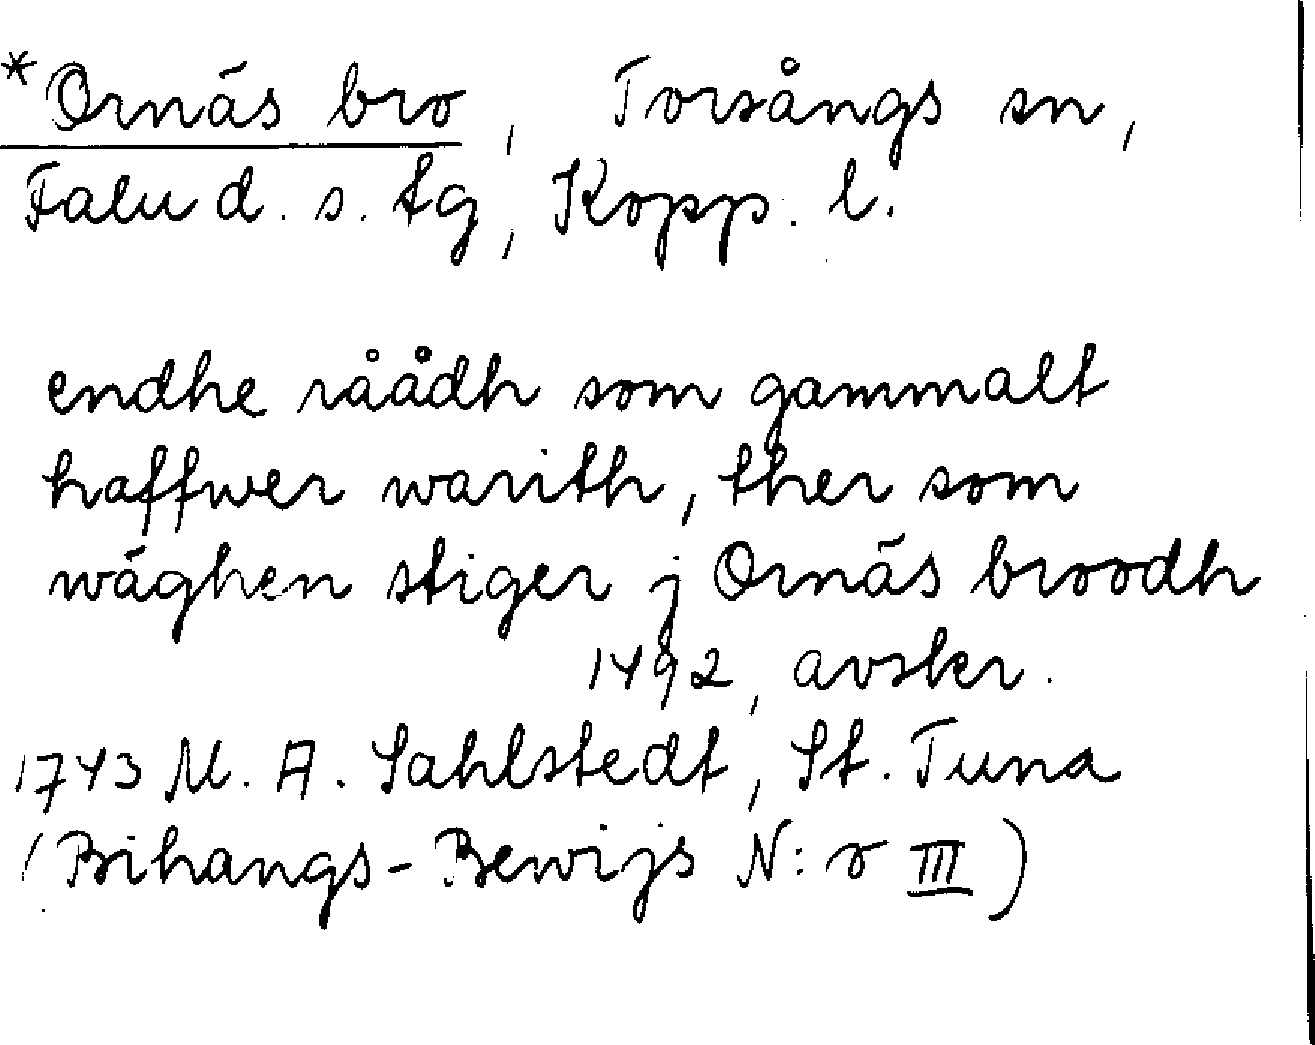 *Ornäs bro, Torsångs sn,
Falu d. s. tg, Kopp. l.
endhe råådh som gammalt
haffwer warith, ther som
wäghen stiger j Ornäs broodh
1492, avskr.
1743 M. A. Sahlstedt, St. Tuna
(Bihangs-Bewijs N:o III)